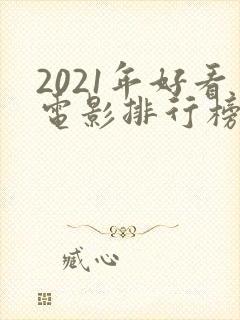 2021年好看
电影排行榜
臧心